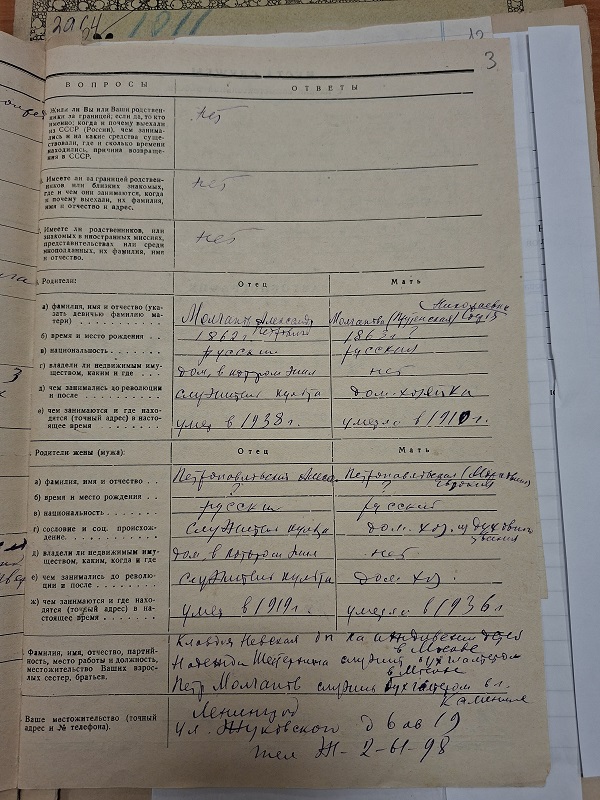 29/24.
1011
12
3
ВОПРОСЫ ОТВЕТЫ
Жили ли Вы или Ваши родствен-
ники за границей; если да, то кто
именно; когда и почему выехали
из СССР (России), чем занима-
лись и на какие средства суще-
ствовали, где и сколько времени
находились, причина возвраще-
ния в СССР.
нет
Имеете ли за границей родствен-
ников или близких знакомых,
где и чем они занимаются, когда
и почему выехали, их фамилия,
имя и отчество и адрес.
нет
Имеете ли родственников, или
знакомых в иностранных миссиях,
представительствах или среди
иноподданных, их фамилия, имя
и отчество.
нет
Родители: Отец Мать
а) фамилия, имя и отчество (ука-
зать девичью фамилию ма-
тери)
Молчанов Александр
Николаевна
София
б) время и место рождения
1862 г. 1863 г. ?
в) национальность
русский русская
г) владели ли недвижимым иму-
ществом, каким и где
дом, в котором жил нет
д) чем занимались до революции
и после
служитель культа дом-хозяйка
е) чем занимаются и где нахо-
дятся (точный адрес) в настоя-
щее время
умер в 1938 г. умерла в 1910 г.
Родители жены (мужа): Отец Мать
а) фамилия, имя и отчество
б) время и место рождения
?
в) национальность
русский русская
г) сословие и соц. происхож-
дение
служитель культа дом. хоз. из духовного
звания
д) владели ли недвижимым иму-
ществом, каким, когда и где
дом, в котором жил нет
е) чем занимались до револю-
ции и после
служитель культа дом хоз.
ж) чем занимаются и где нахо-
дятся (точный адрес) в на-
стоящее время
умер в 1919 г. умерла в 1936 г
Фамилия, имя, отчество, партий-
ность, место работы и должность,
местожительство Ваших взрос-
лых сестер, братьев.
Клавдия Невская
в Москве
Надежда служит бухгалтером
в Москве
Петр Молчанов служит бухгалтером в г.
Калинине
Ваше местожительство (точный
адрес и № телефона).
Ленинград
ул. Жуковского д 6 кв 19
тел Ж-2-61-98